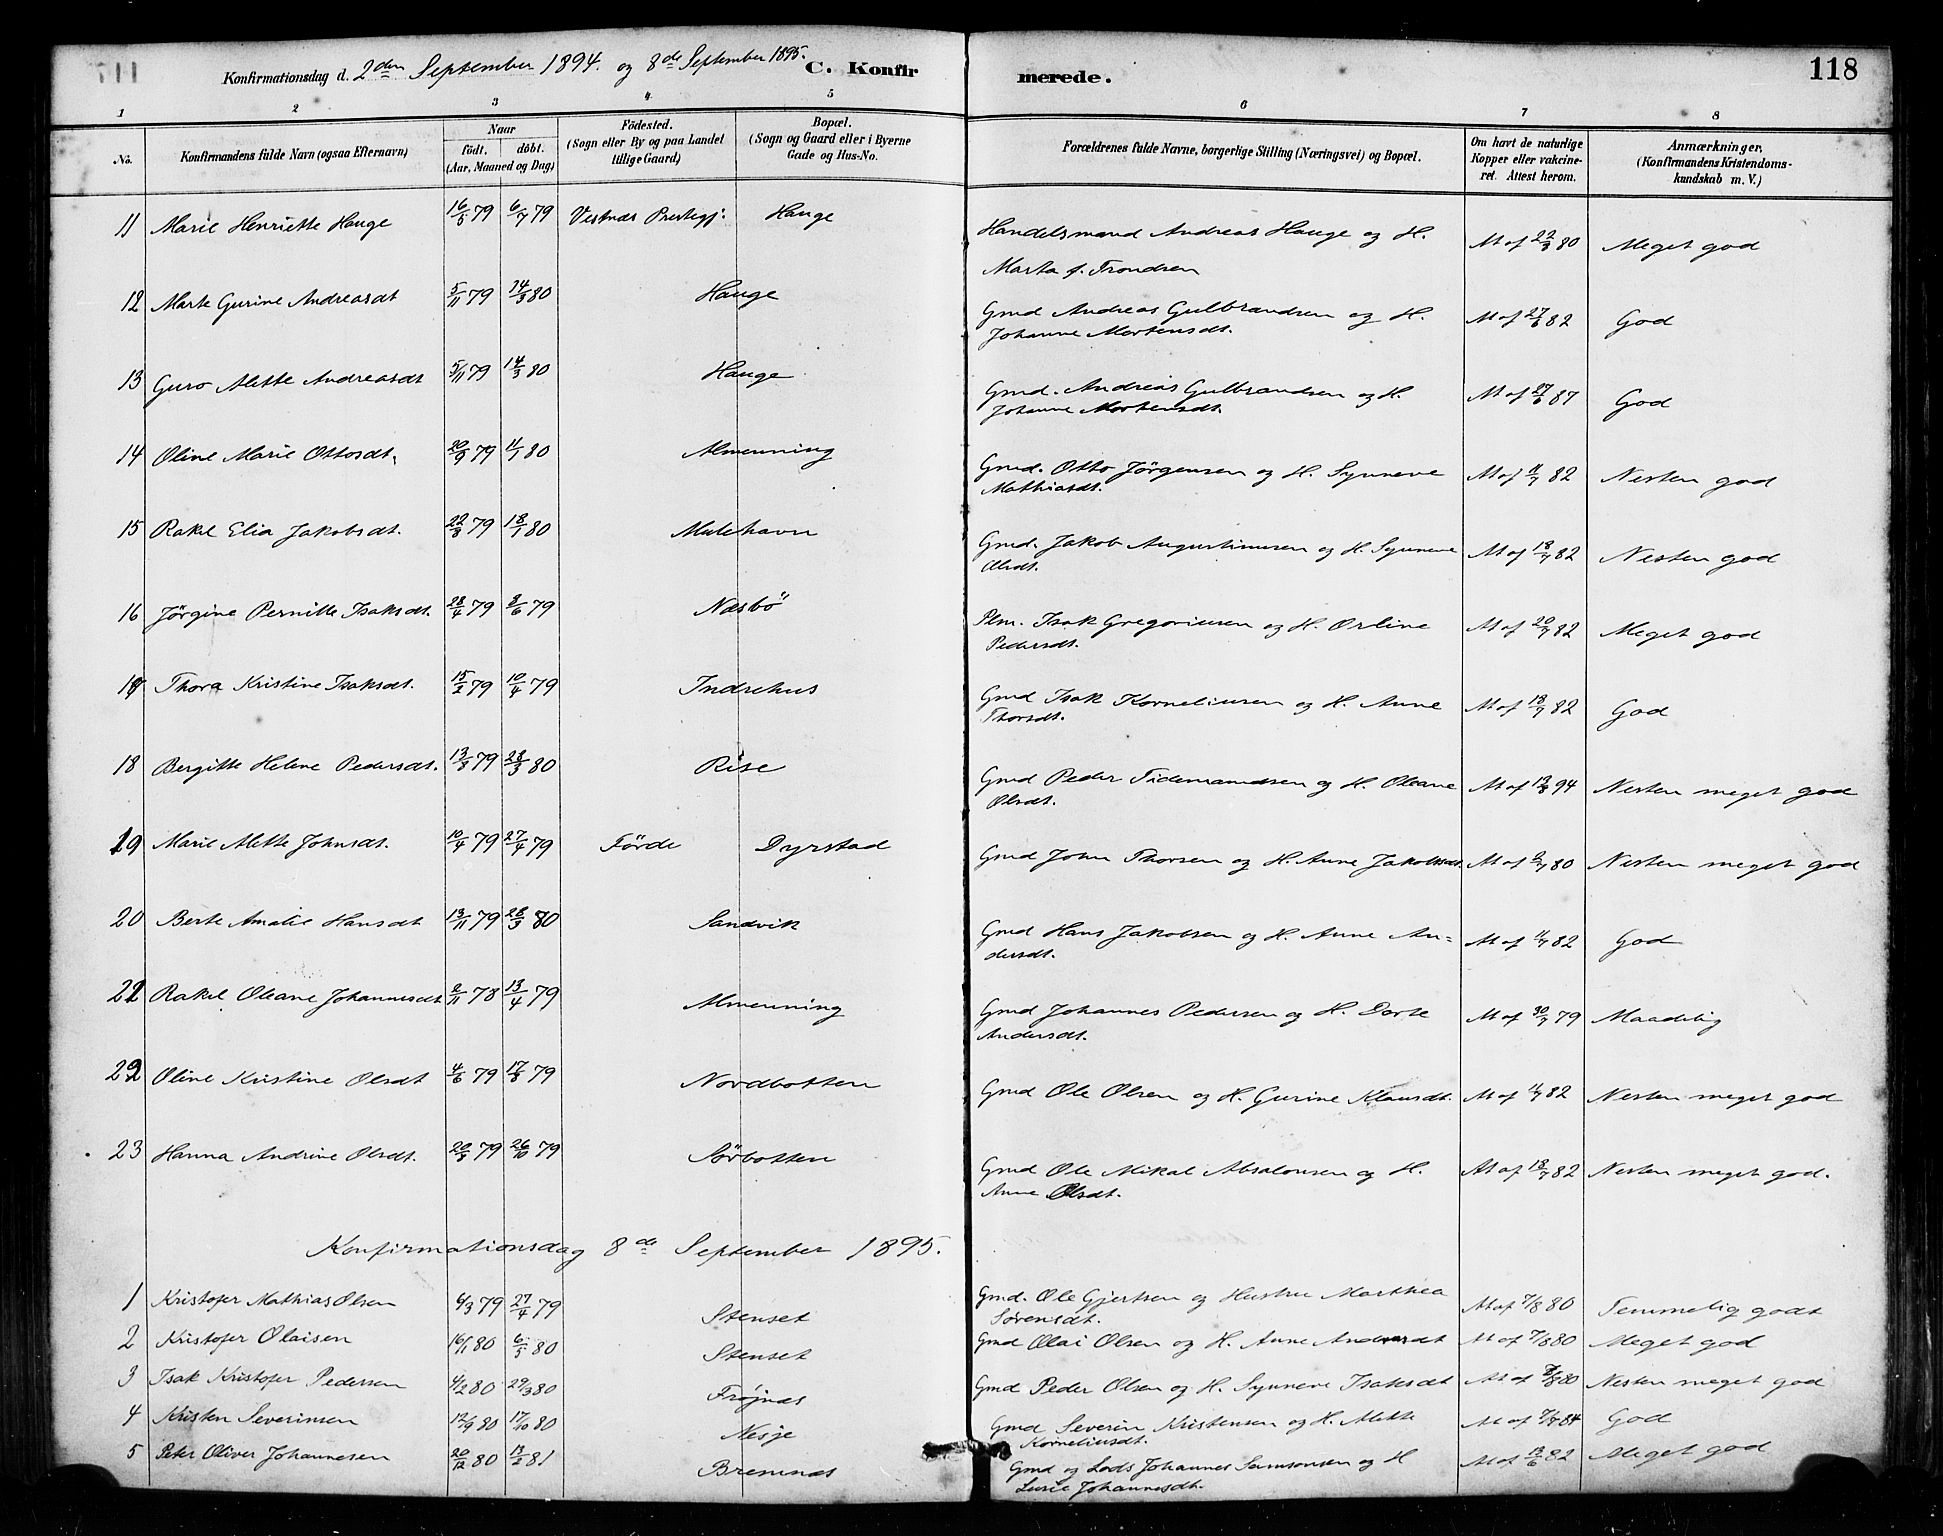 Konfirmationsdag d. 2den September 1894. og 8de September 1895.
C. Konfirmerede.
118
1 2 3 4 5 6 7 8
No. Konfirmandens fulde Navn (ogsaa Efternavn) Naar födt. döbt. (Aar, Maaned og Dag) Födested. (Sogn eller By og paa Landet tillige Gaard) Bopæl. (Sogn og Gaard eller i Byerne Gade og Hus-No. Forældrenes fulde Navne, borgerlige Stilling (Næringsvei) og Bopæl. Om havt de naturlige Kopper eller vakcineret. Attest herom. Anmærkninger, (Konfirmandens Kristendomskundskab m. V.)
11 Marie Henriette Hauge 16/5 79 6/7 79 Vestnæs Prestegj: Hauge Handelsmand Andreas Hauge og H. Marta f. Trondsen At af 22/3 80 Meget god
12 Marte Gurine Andreasdt 5/11 79 14/3 80 Hauge Gmd Andreas Gulbrandsen og H. Johanne Mortensdt. At af 27/6 82 God
13 Guro Alette Andreasdt 5/11 79 14/3 80 Hauge Gmd. Andreas Gulbrandsen og H. Johanne Mortensdt. At af 27/6 87 God
14 Oline Marie Ottosdt. 20/9 79 1/1 80 Almenning Gmd. Otto Jörgensen og H. Synneve Mathiasdt. At af 11/7 82 Nesten god
15 Rakel Elia Jakobsdt. 22/8 79 18/1 80 Mulehavn Gmd. Jakob Augustinusen og H. Synneve Olsdt. At af 18/7 82 Nesten god
16 Jörgine Pernille Isaksdt. 28/4 79 8/6 79 Næsbö Plm. Isak Gregoriusen og H. Orline Pedersdt. At af 20/7 82 Meget god
17 Thora Kristine Isaksdt. 15/2 79 10/4 79 Indrehus Gmd Isak Korneliusen og H. Anne Thorsdt. At af 18/7 82 God
18 Bergitte Helene Pedersdt. 13/3 79 28/3 80 Rise Gmd Peder Tidemandsen og H. Oleane Olsdt. At af 19/8 94 Nesten meget god
19 Marie Alette Johnsdt. 10/4 79 27/4 79 Förde Dyrstad Gmd John Thorsen og H. Anne Jakobsdt. At af 9/7 80 Nesten meget god
20 Berte Amalie Hansdt 13/11 79 28/3 80 Sandvik Gmd Hans Jakobsen og H. Anne Andersdt. At af 11/7 82 God
21 Rakel Oleane Johannesdt 2/11 78 13/4 79 Almenning Gmd Johannes Pedersen og H. Dorte Andersdt. At af 30/7 79 Maadelig
22 Oline Kristine Olsdt 4/6 79 17/8 79 Nordbotten Gmd Ole Olsen og H. Gurine Klausdt. At af 11/7 82 Nesten meget god
23 Hanna Andrine Olsdt. 20/9 79 26/10 79 Sörbotten Gmd Ole Mikal Absalonsen og H. Anne Olsdt. At af 18/7 82 Nesten meget god.
Konfirmationsdag 8de September 1895.
1 Kristofer Mathias Olsen 6/3 79 27/4 79 Stenset Gmd. Ole Gjertsen og Hustru Marthea Sörensdt. At af 7/8 80 Temmelig godt
2 Kristofer Olaisen 16/1 80 6/5 80 Stenset Gmd Olai Olsen og H. Anne Andersdt At af 7/8 80 Meget god
3 Isak Kristofer Pedersen 4/2 80 29/3 80 Fröjnæs Gmd Peder Olsen og H. Synneve Isaksdt At af 7/8 80 Nesten meget god
4 Kristen Severinsen 12/9 80 17/10 80 Nesje Gmd Severin Kristensen og H. Alette Korneliusdt. At af 7/7 84 God
5 Peter Oliver Johannesen 20/12 80 13/2 81 Bremnæs Gmd og Lods Johannes Samsonsen og H Lusie Johannesdt. At af 13/6 82 Meget god